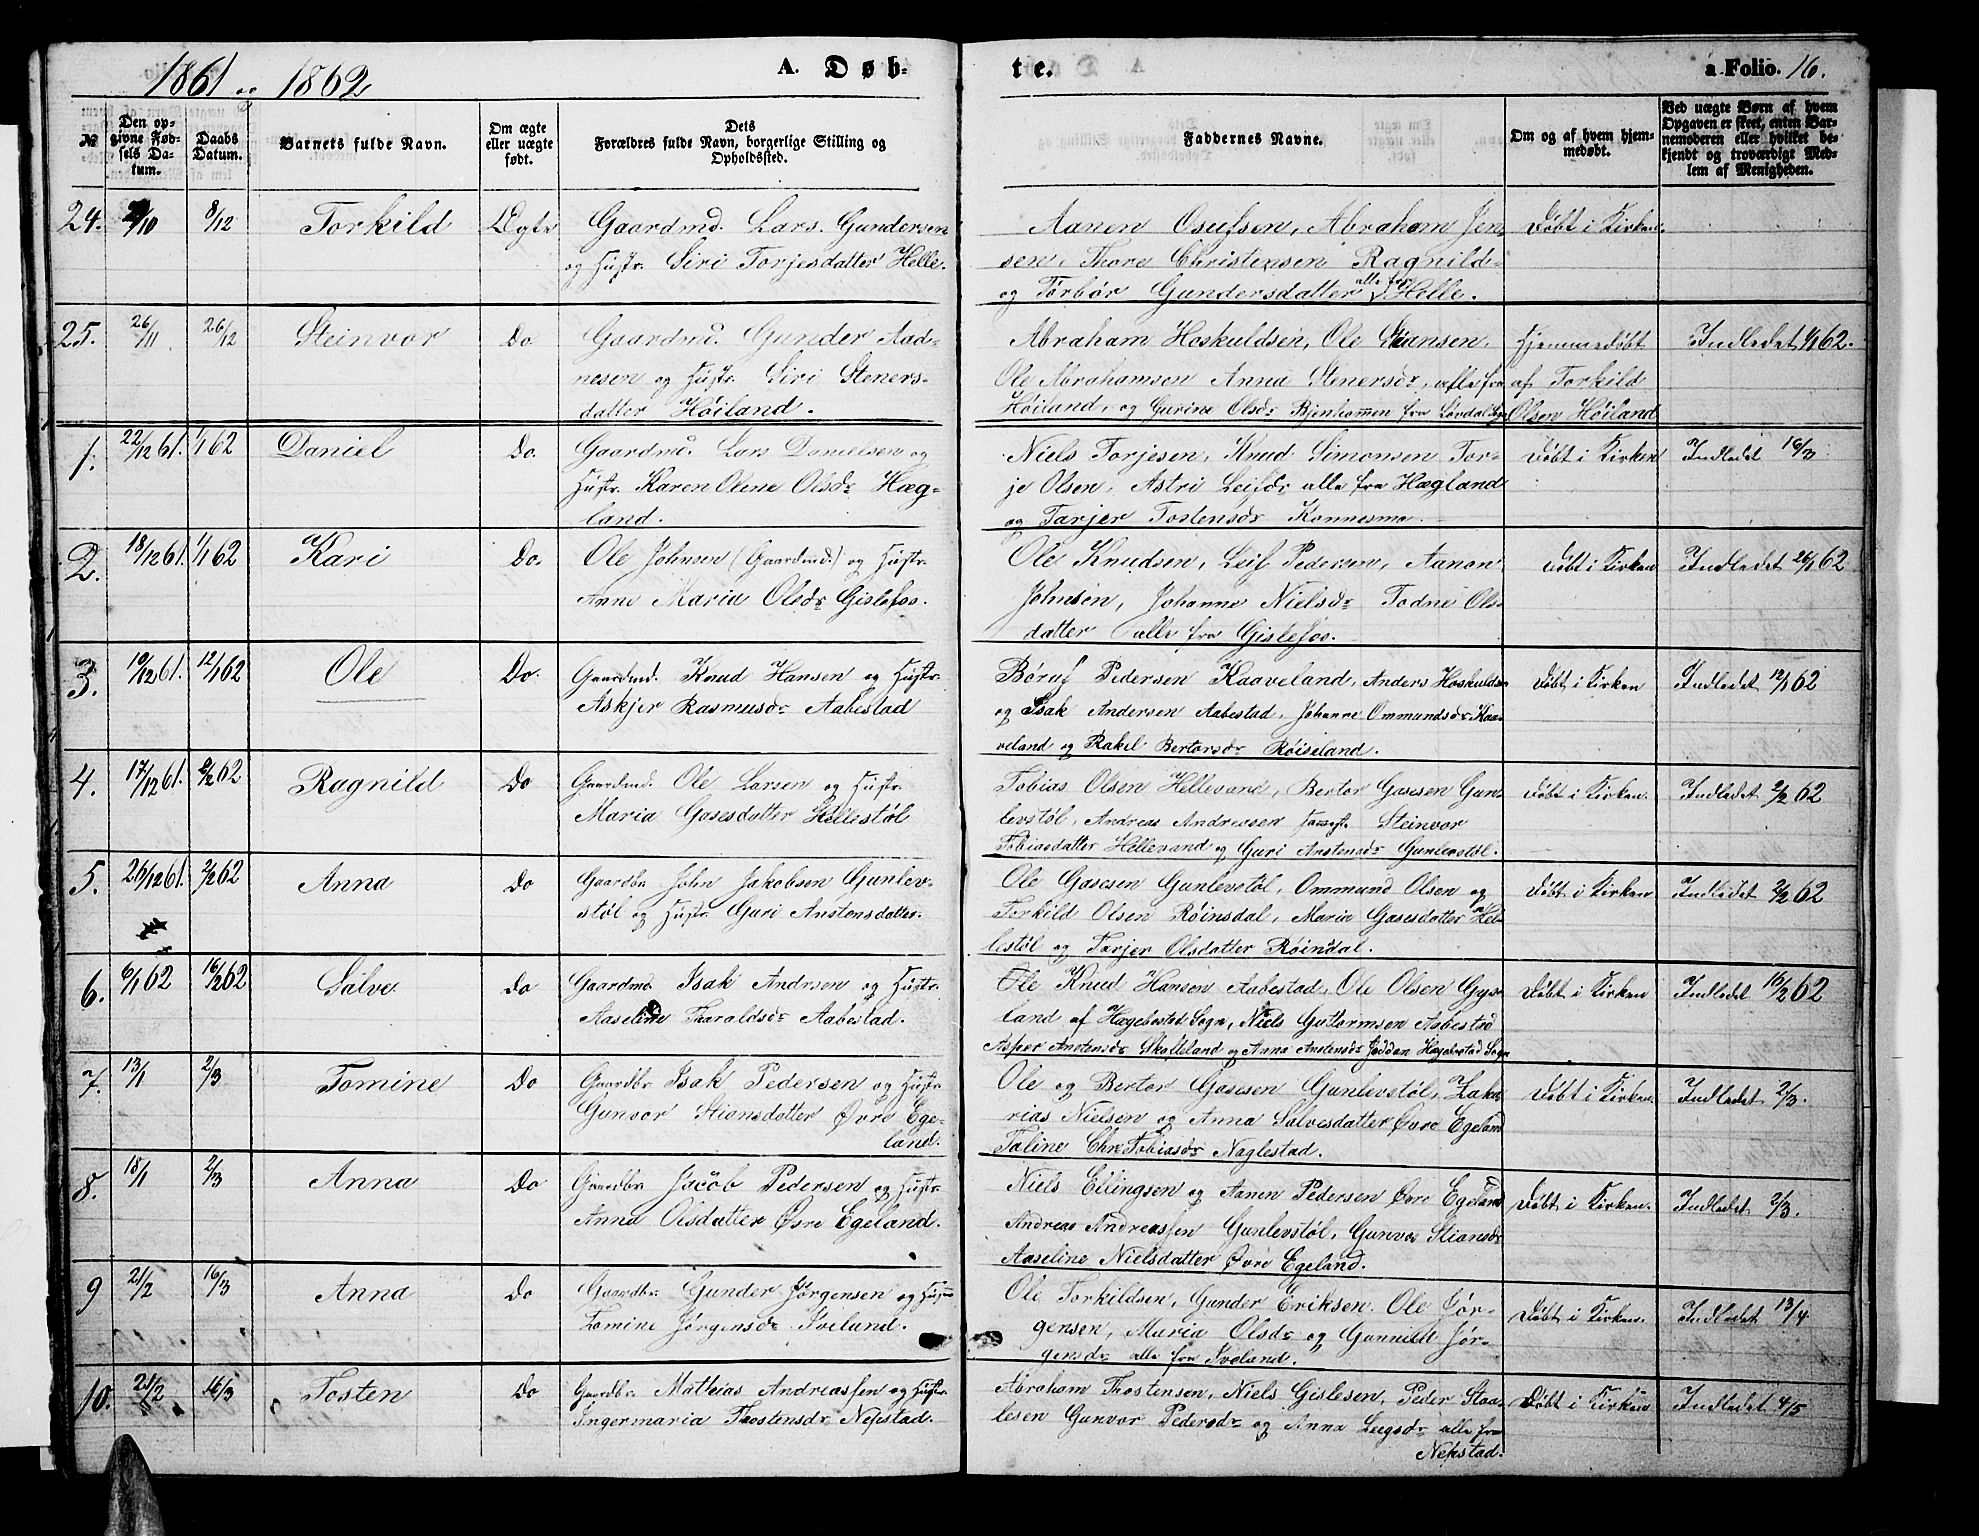 1861 og 1862
A. Døb-
te.
a Folio. 16.
№
Den op-
givne Fød-
sels Da-
tum.
Daabs
Datum.
Barnets fulde Navn.
Om ægte
eller uægte
født.
Dets
Forældres fulde Navn, borgerlige Stilling og
Opholdssted.
Faddernes Navne.
Om og af hvem hjem-
medøbt.
Ved uægte Børn af hvem
Opgaven er skeet, enten Bar-
nemoderen eller hvilket be-
kjendt og troværdigt Med-
lem af Menigheden.
24. /10 8/12 Torkild Ægte Gaardmd. Lars Gundersen
og Hustr. Siri Torjesdatter Helle.
Aanen Osufsen, Abraham Jen-
sen, Thore Christensen Ragnild
og Tørbør Gundersdatter alle fra Helle.
Døbt i Kirken.
25. 26/11 26/12 Steinvor Do Gaardmd. Gunder Aad-
nesen og Hustr. Siri Steners-
datter Høiland.
Abraham Hoskuldsen, Ole Stiansen,
Ole Abrahamsen Anna Stenersdr, alle fra
Høiland, og Gurine Olsdr fra
Hjemmedøbt
af Torkild
Olsen Høiland
Indledet 1/1 62.
1. 22/12 61. 1/1 62 Daniel Do. Gaardmd. Lars Danielsen og
Hustr. Karen Oline Olsdr Hæg-
land.
Niels Torjesen, Knud Simonsen Tor-
je Olsen, Astri Leifsdr alle fra Hægland
og Tarjer Tostensdr Konnesmo.
Døbt i Kirken
Indledet 16/3
2. 18/12 61. 1/1 62 Kari Do. Ole Johnsen (Gaardmd.) og Hustr.
Anne Maria Olsdr Gislefos.
Ole Knudsen, Leif Pedersen, Aanon
Johnsen, Johanne Nielsdr Todne Ols-
datter alle fra Gislefos.
Døbt i Kirken
Indledet 26/1 62
3. 10/12 61. 12/1 62 Ole Do. Gaardmd. Knud Hansen og Hustr.
Askjer Rasmusdr Aabestad
Børuf Pedersen Kaaveland, Anders Hoskuldsen
og Isak Andersen Aabestad, Johanne Ommundsdr Kaa-
veland og Rakel Bertorsdr Røiseland.
Døbt i Kirken
Indledet 12/1 62
4. 17/12 61. 2/2 62 Ragnild Do Gaardmd. Ole Larsen og Hustr.
Maria Gasesdatter Hellestøl
Tobias Olsen Hellevand, Bertor Gasesen Gun-
levstøl, Andreas Andreasen Steinvor
Tobiasdatter Hellevand og Guri Anstensdr Gunlevstøl.
Døbt i Kirken
Indledet 2/2 62
5. 26/12 61. 2/2 62 Anna Do Gaardbr John Jakobsen Gunlev-
støl og Hustr. Guri Anstensdatter.
Ole Gasesen Gunlevstøl, Ommund Olsen og
Terkild Olsen Røinsdal, Maria Gasesdatter Hel-
lestøl og Tarjer Olsdatter Røindal.
Døbt i Kirken
Indledet 2/2 62
6. 6/1 62 16/2 62 Salve Do Gaardmd Isak Andrsen og Hustr.
Aaseline Tharaldsdr Aabestad.
Ole Knud Hansen Aabestad, Ole Olsen Gys-
land af Hægebostad Sogn, Niels Guttormsen Aabestad
Asper Anstensdr Skolleland og Anna Anstensdr Hægebostad Sogn
Døbt i Kirken
Indledet 16/2 62
7. 13/1 2/3 Tomine Do Gaardbr Isak Pedersen og Hustr
Gunvor Stiansdatter Øvre Ege-
land.
Ole og Bertor Gasesen Gunlevstøl, Zaka-
rias Nielsen og Anna Salvesdatter Øvre Egeland
Taline Chr. Tobiasdr Naglestad.
Døbt i Kirken.
Indledet 2/3.
8. 18/1 2/3 Anna Do Gaardbr Jacob Pedersen og Hustr
Anna Olsdatter Øvre Egeland.
Niels Ellingsen og Aanen Pedersen Øvre Egeland
Andreas Andreassen Gunlevstøl, Gunvor Stiansdr
Aaseline Nielsdatter Øvre Egeland.
Døbt i Kirken.
Indledet 2/3.
9 21/2 16/3 Anna Do Gaardbr. Gunder Jørgensen og Hustr
Tomine Jørgensdr Iveland.
Ole Torkildsen, Gunder Eriksen. Ole Jør-
gensen, Maria Olsdr og Gunnild Jør-
gensdr alle fra Iveland.
Døbt i Kirken.
Indledet 13/4
10. 21/2 16/3 Tosten Do Gaardbr. Mathias Andreassen og Hustr.
Ingermaria Thostensdr Nepstad.
Abraham Thostensen, Niels Gislesen, Peder Staa-
lesen Gunvor Pedersdr og Anna alle fra
Nepstad.
Døbt i Kirken
Indledet 4/5